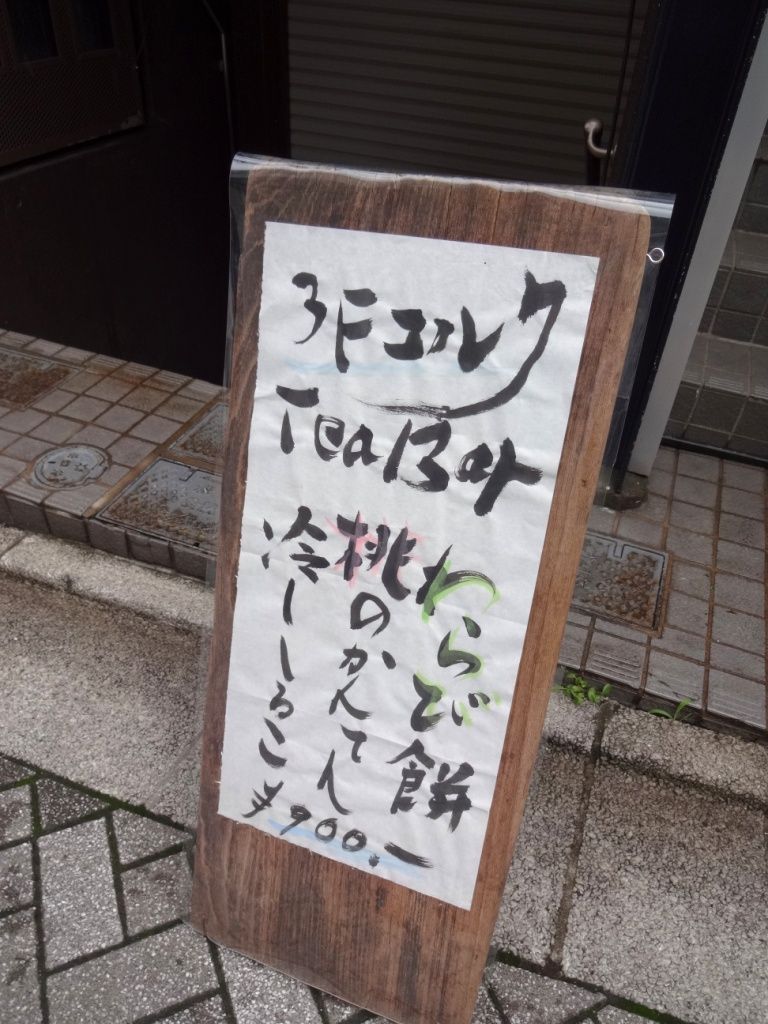 3Fエルク
Tea Bar
わらび餅
桃のかんてん
冷ししるこ
¥900.ー